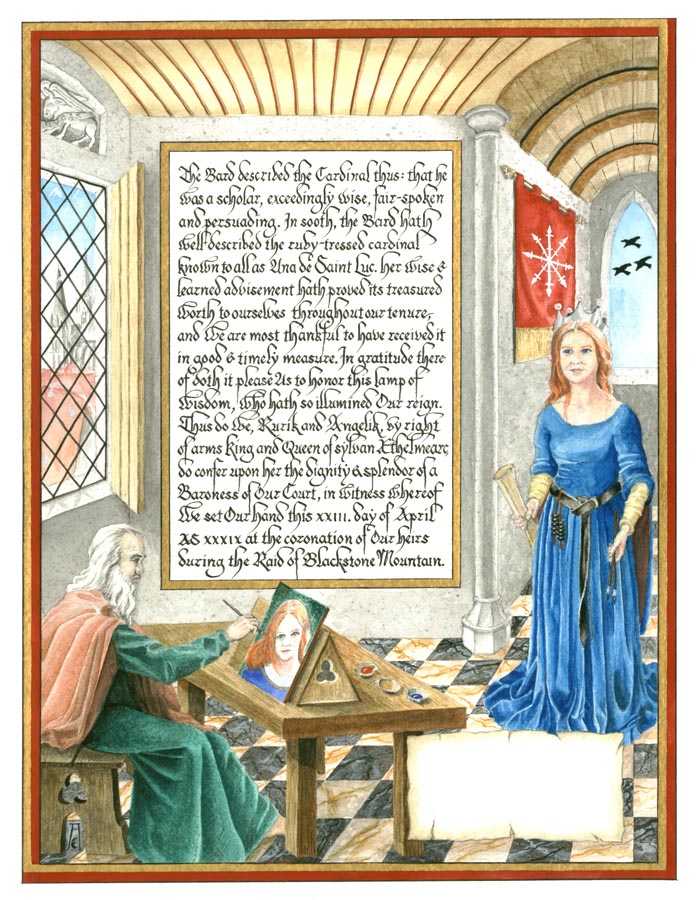 The Bard described the Cardinal thus: that he
was a scholar, exceedingly wise, fair-spoken
and persuading. In sooth, the Bard hath
well described the ruby-tressed cardinal
known to all as Ana de Saint Luc. her wise &
learned advisement hath proved its treasured
worth to ourselves throughout our tenure,
and we are most thankful to have received it
in good & timely measure. In gratitude there
of doth it please Us to honor this lamp of
wisdom, who hath so illumined Our reign.
Thus do We, Rurik and Angelik, by right
of arms King and Queen of sylvan Æthelmearc,
do confer upon her the dignity & splendor of a
Baroness of Our Court, in witness whereof
We set Our hand this xxiii. day of April
AS xxxix at the coronation of Our heirs
during the Raid of Blackstone Mountain.